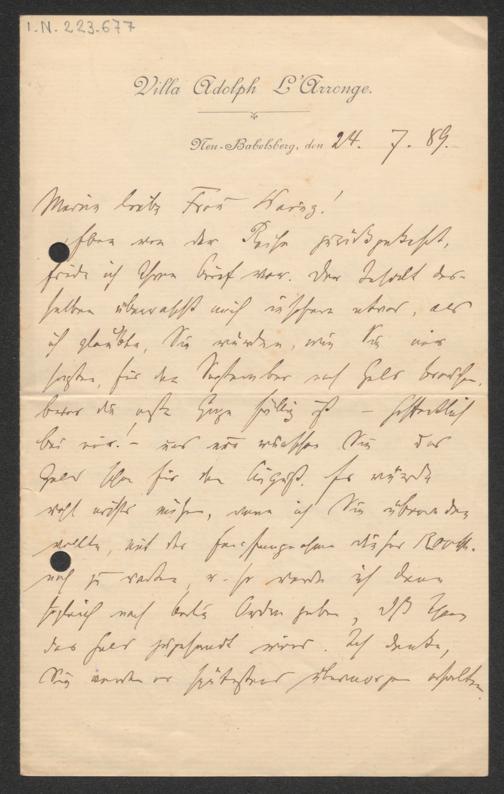 I.N. 223.677
Villa Adolph L'Arronge.
Neu-Babelsberg, den 24. 7. 89.
Meine liebe Frau
Eben von der Reise zurückgekehrt,
finde ich Ihren Brief vor. Der Inhalt des-
selben überrascht mich insofern etwas, als
ich glaubte, Sie würden, wie Sie mir
sagten, für den September noch Geld brauchen,
bevor die erste Gage fällig ist – hoffentlich
bei mir! – und nun wünschen Sie das
Geld schon für den August. Es würde
wohl nichts nützen, wenn ich Sie überreden
wollte, mit der dieser Mk.
noch zu warten, u. so werde ich denn
sogleich nach Berlin Ordre geben, daß Ihnen
das Geld zugesandt wird. Ich denke,
Sie werden es spätestens übermorgen erhalten.